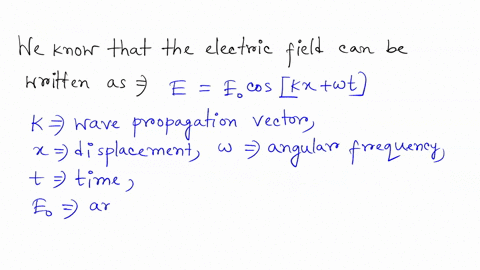 We know that the electric field can be
written as ⇒ E = E₀ cos [kx + ωt]
K ⇒ wave propagation vector,
x ⇒ displacement, ω ⇒ angular frequency,
t ⇒ time,
E₀ ⇒ ar